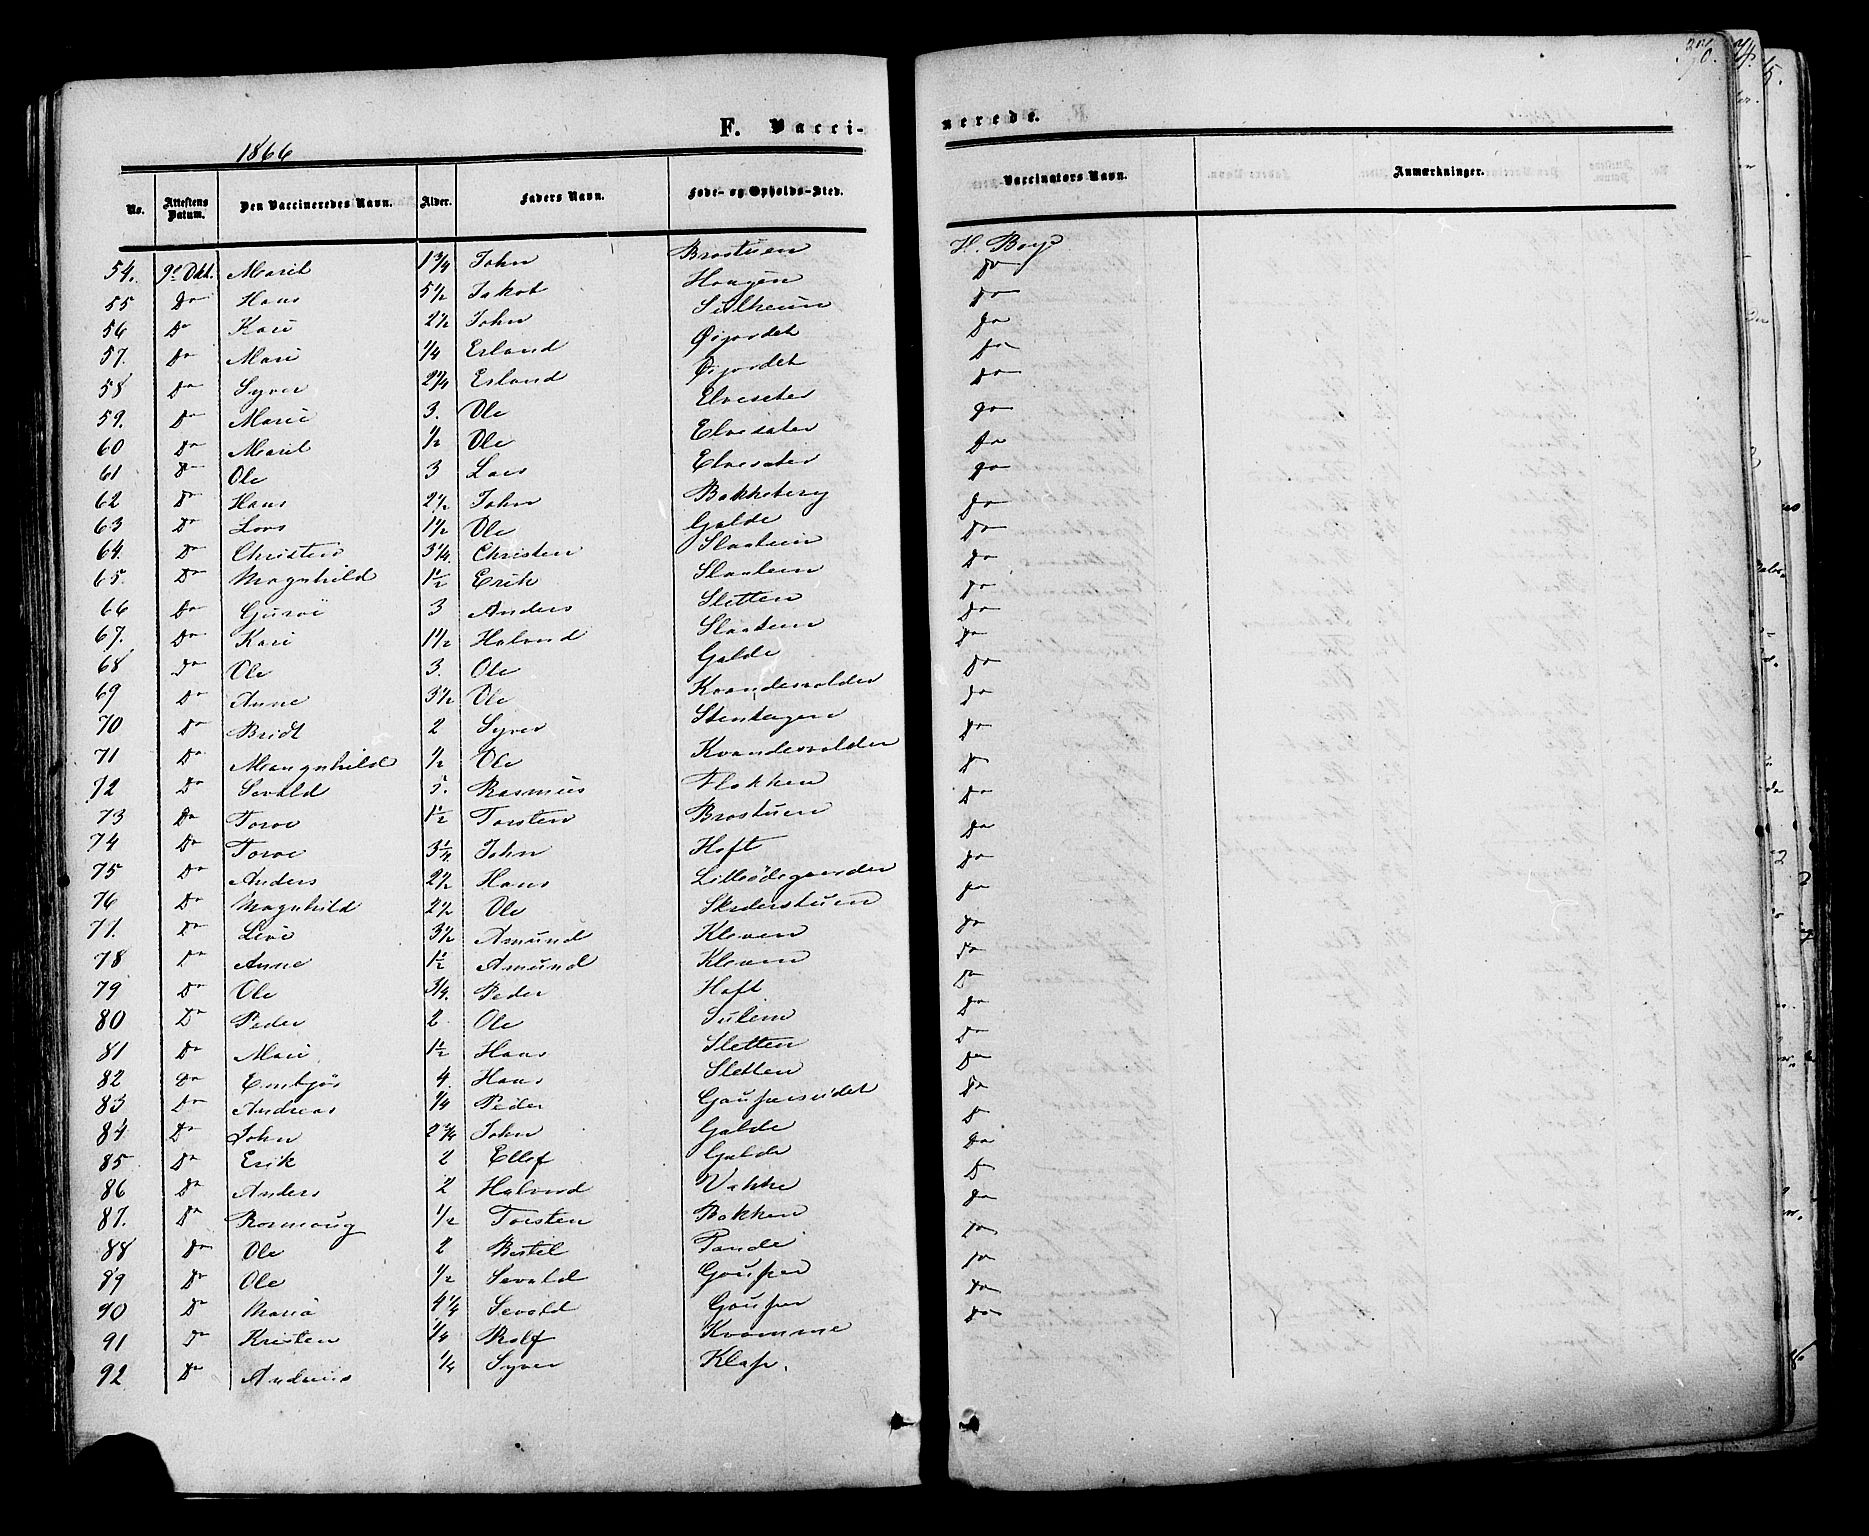 376.
1866
F. Vacci-
nerede.
No. | Attestens Datum. | Den Vaccineredes Navn. | Alder. | Faders Navn. | Føde- og Opholds-Sted. | Vaccinators Navn. | Anmærkninger.
54. | 9de Okt. | Marit | 1 3/4 | John | Brostuen | H. Berg
55 | Do | Hans | 5 1/2 | Jakob | Haugen | Do
56 | Do | Kari | 2 1/2 | John | Sulheim | Do
57. | Do | Mari | 1/4 | Erland | Øigardet | Do
58 | Do | Syver | 2 1/4 | Erland | Øigardet | Do
59. | Do | Marie | 3. | Ole | Elveseter | Do
60 | Do | Marit | 1/2 | Ole | Elveseter | Do
61 | Do | Ole | 3 | Lars | Elveseter | Do
62 | Do | Hans | 2 1/2 | John | Bakkeberg | Do
63 | Do | Lars | 1 1/2 | Ole | Galde | Do
64. | Do | Christen | 3 1/4 | Christen | Slaateim | Do
65. | Do | Magnhild | 1 1/2 | Erik | Slaateim | Do
66 | Do | Guroe | 3 | Anders | Sletten | Do
67. | Do | Kari | 1 1/2 | Halvord | Slaateim | Do
68 | Do | Ole | 3. | Ole | Galde | Do
69 | Do | Anne | 3 1/2 | Ole | Kvandesvolden | Do
70 | Do | Bridt | 2 | Syver | Stenhagen | Do
71 | Do | Mangnhild | 1/2 | Ole | Kvandesvolden | Do
72 | Do | Sevald | 5. | Rasmus | Flakken | Do
73 | Do | Toroe | 1 1/2 | Torsten | Brostuen | Do
74 | Do | Toroe | 3 1/2 | John | Hoft | Do
75 | Do | Anders | 2 1/2 | Hans | Lilleødegaarden | Do
76 | Do | Magnhild | 2 1/2 | Ole | Skederstuen | Do
77. | Do | Livi | 3 1/2 | Amund | Kleven | Do
78 | Do | Anne | 1 1/2 | Amund | Kleven | Do
79 | Do | Ole | 3/4. | Peder | Hoft | Do
80 | Do | Peder | 2 | Ole | Sulem | Do
81 | Do | Mari | 1 1/2 | Hans | Sletten | Do
82 | Do | Embjør | 4. | Hans | Sletten | Do
83 | Do | Andreas | 1/4 | Peder | Gaupersidet | Do
84 | Do | John | 2 3/4 | John | Galde | Do
85 | Do | Erik | 2 | Ellef | Galde | Do
86 | Do | Anders | 2 | Halvord | Vakke | Do
87. | Do | Rasmoug | 1/2 | Torsten | Bakken | Do
88 | Do | Ole | 2 | Bertel | Tande | Do
89 | Do | Ole | 1/2 | Sevald | Gauper | Do
90 | Do | Maria | 4 1/4 | Sevald | Gauper | Do
91 | Do | Kristen | 1/4 | Rolf | Kvamme | Do
92 | Do | Andreas | 1/4 | Syver | Klape.